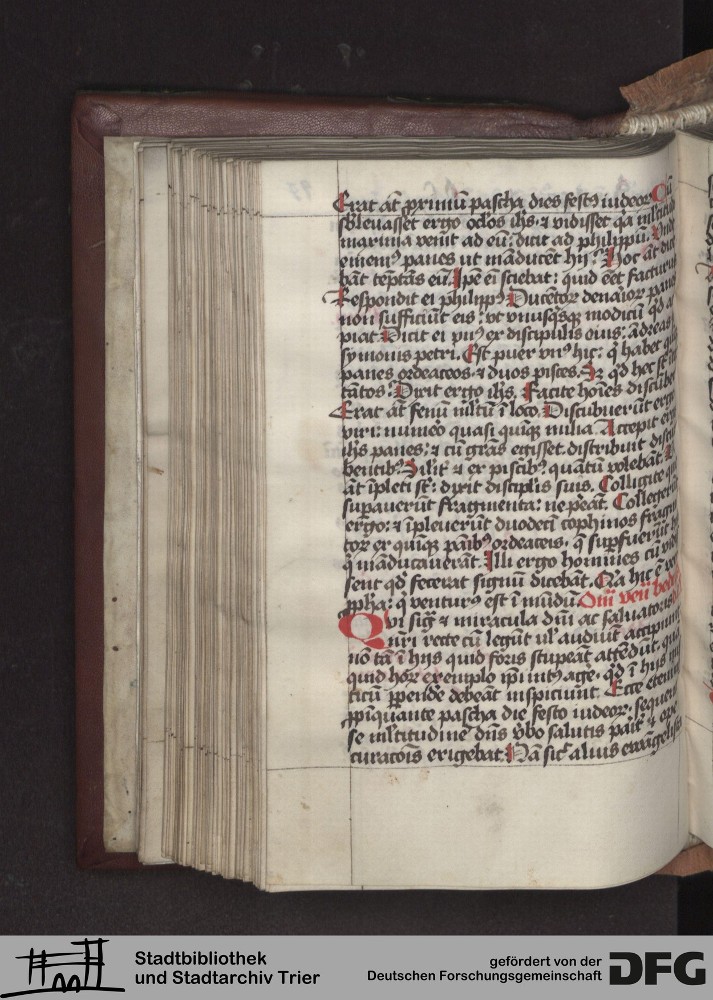 Erat aūt ꝓximū pascha dies festꝰ iudeoꝝ Cū
sbleuasset ergo oclos ihs: ⁊ vidisset qa mltitud
maxima venit ad eū: dicit ad philippū. Vnde
ememꝰ panes ut māducēt hij? Hoc āt dice
bāt tēptās eū. Ipē eī sciebat: quid eēt facturus
Respondit ei philippꝰ Ducētoꝝ denaⁱoꝝ panes
non sufficiūt eis: vt vnusqsqꝫ modicū qd ac
piat Dicit ei vnꝰ ex discipulis eius: ādreas
symonis petri. Est puer vnꝰ hic: q habet
panes ordeaceos ⁊ duos pisces. Sꝫ qd hec st īt
tātos? Dixit ergo ihs. Facite hoīes discūbe
Erat āt fenū mltū ī loco. Discubuerūt ergo
viri: numeo quasi quīqꝫ milia. Accepit ergo
ihs panes: ⁊ cū grās egisset distribuit discū
bentibꝰ Silit ⁊ ex piscibꝰ quātū volebāt. Vt
āt īpleti st: dixit disciplis suis. Colligite que
supauerūt fragmenta: ne peāt. Collegerūt
ergo: ⁊ īpleuerūt duodecī cophinos fragm
toꝝ ex quīqꝫ panibꝰ ordeaceis, q supfuerūt h
q māducauerāt. Illi ergo homines cū vidis
sent qd fecerat signū dicebāt. Qa hic ē ver
ꝓpha: q venturꝰ est ī mūdū. Om̄ ven bede
Qvi sigꝫ ⁊ miracula dm̄ ac saluatoris
nr̄i recte cū legūt ul audiūt accipiunt
nō tā ī hijs quid foris stupeāt attēdūt, qua
quid hoꝝ exemplo ipi intꝰ age, qd ī hijs mis
ticū ppende debeāt inspiciunt. Ecce etenim
ppīquante pascha die festo iudeoꝝ sequen
se mltitudinē dn̄s vbo salutis pait ⁊ ope
curacois erigebat. Nā sic alius ewāgelista
Stadtbibliothek
und Stadtarchiv Trier
gefördert von der
Deutschen Forschungsgemeinschaft
DFG